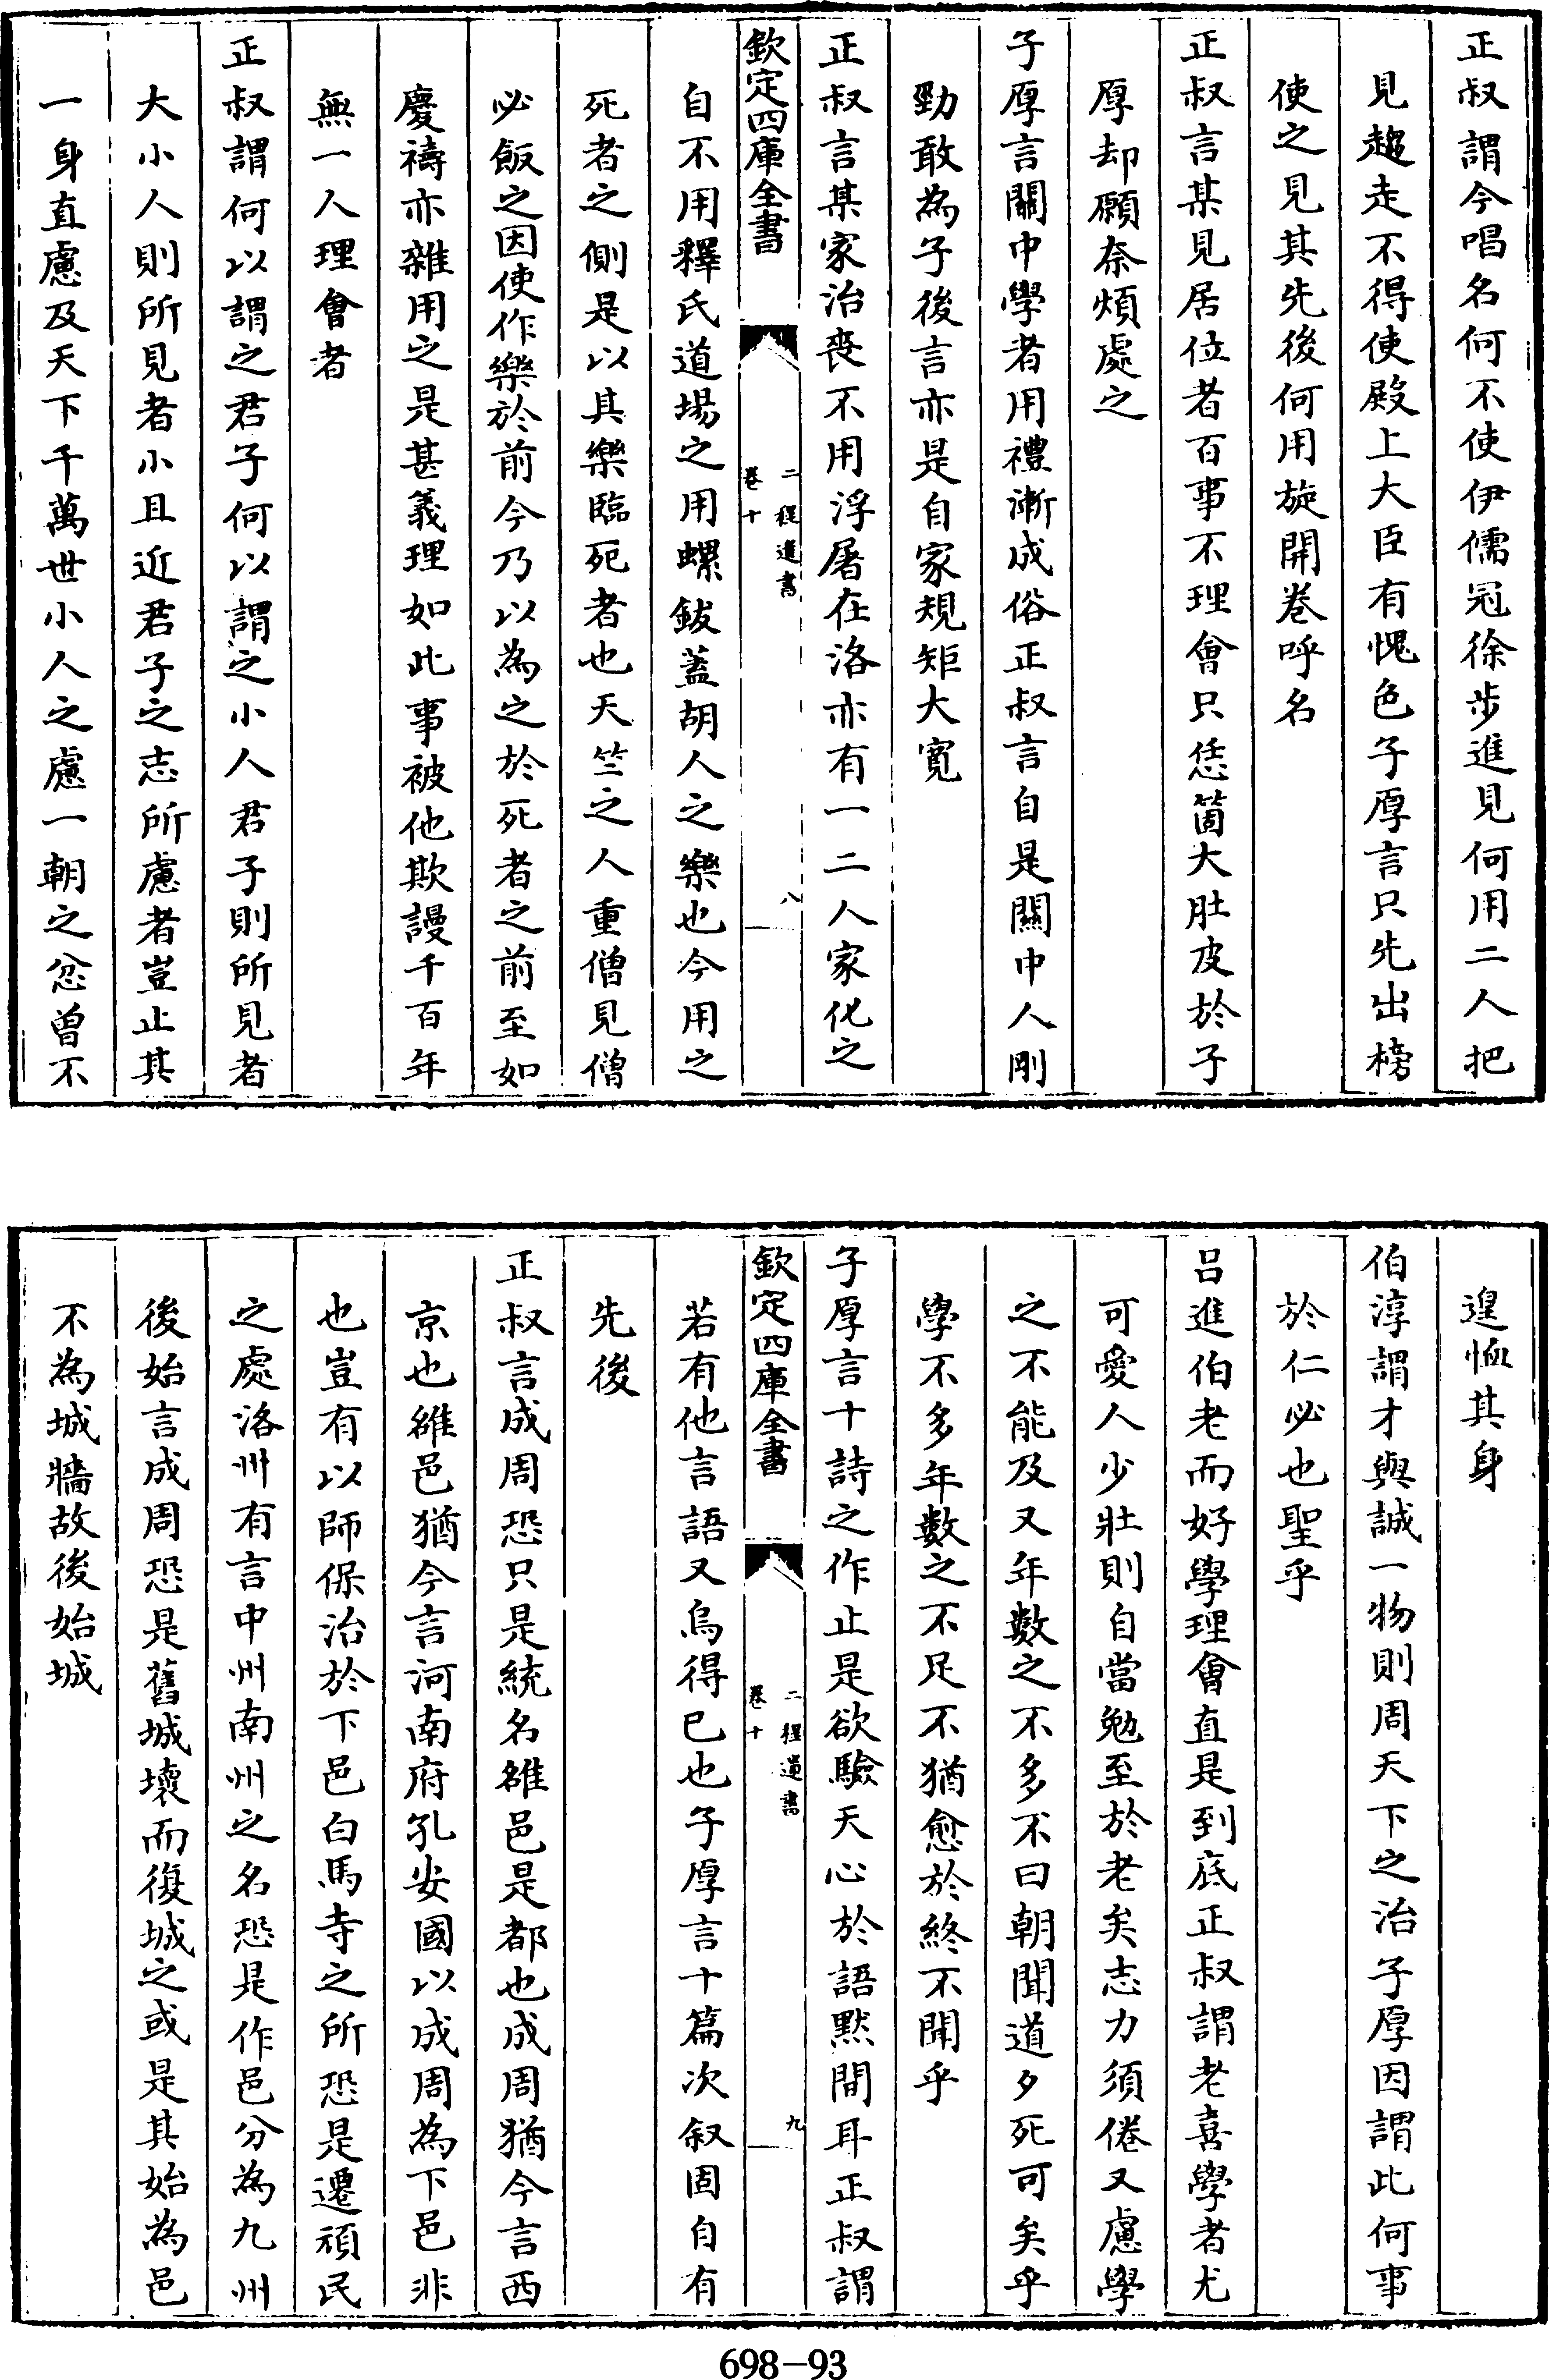 正叔謂今唱名何不使伊儒冠徐步進見何用二人把
見趨走不得使殿上大臣有愧色子厚言只先出榜
使之見其先後何用旋開卷呼名
正叔言某見居位者百事不理會只恁箇大肚皮於子
厚却願奈煩處之
子厚言關中學者用禮漸成俗正叔言自是關中人剛
勁敢為子後言亦是自家規矩大寬
正叔言某家治喪不用浮屠在洛亦有一二人家化之
欽定四庫全書
二程遺書
卷十
八
自不用釋氏道場之用螺鈸蓋胡人之樂也今用之
死者之側是以其樂臨死者也天竺之人重僧見僧
必飯之因使作樂於前今乃以為之於死者之前至如
慶禱亦雜用之是甚義理如此事被他欺謾千百年
無一人理會者
正叔謂何以謂之君子何以謂之小人君子則所見者
大小人則所見者小且近君子之志所慮者豈止其
一身直慮及天下千萬世小人之慮一朝之忿曾不
遑恤其身
伯淳謂才與誠一物則周天下之治子厚因謂此何事
於仁必也聖乎
呂進伯老而好學理會直是到底正叔謂老喜學者尤
可愛人少壯則自當勉至於老矣志力須倦又慮學
之不能及又年數之不多不曰朝聞道夕死可矣乎
學不多年數之不足不猶愈於終不聞乎
子厚言十詩之作止是欲驗天心於語默間耳正叔謂
欽定四庫全書
二程遺書
卷十
九
若有他言語又烏得已也子厚言十篇次叙固自有
先後
正叔言成周恐只是統名雒邑是都也成周猶今言西
京也雒邑猶今言河南府孔安國以成周為下邑非
也豈有以師保治於下邑白馬寺之所恐是遷頑民
之處洛州有言中州南州之名恐是作邑分為九州
後始言成周恐是舊城壞而復城之或是其始為邑
不為城牆故後始城
698-93